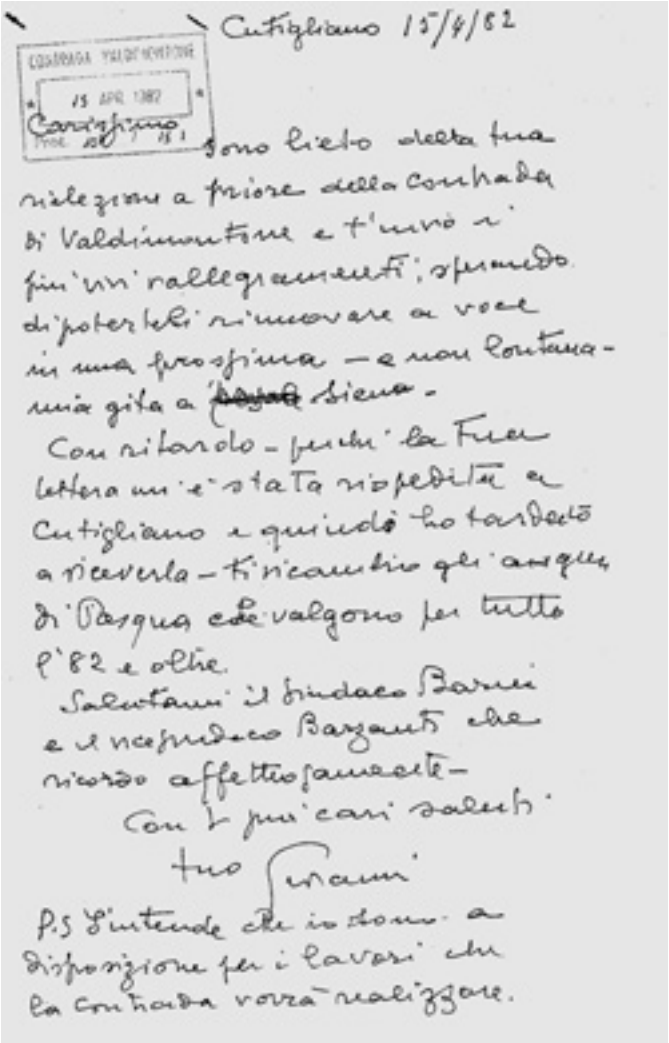 Cutigliano 15/4/82
CONTRADA VALDIMONTONE
15 APR. 1982
Prot.
Carissimo,
sono lieto della tua
rielezione a priore della Contrada
di Valdimontone e t'invio i
più vivi rallegramenti, sperando
di poterteli rinnovare a voce
in una prossima – e non lontana –
mia gita a Siena.
Con ritardo – perché la Tua
lettera mi è stata rispedita a
Cutigliano e quindi ho tardato
a riceverla – ti ricambio gli auguri
di Pasqua che valgono per tutto
l'82 e oltre.
Salutami il Sindaco Barni
e il vicesindaco Barzanti che
ricordo affettuosamente –
Con i più cari saluti.
tuo Giovanni
P.S S'intende che io sono a
disposizione per i lavori che
la Contrada vorrà realizzare.